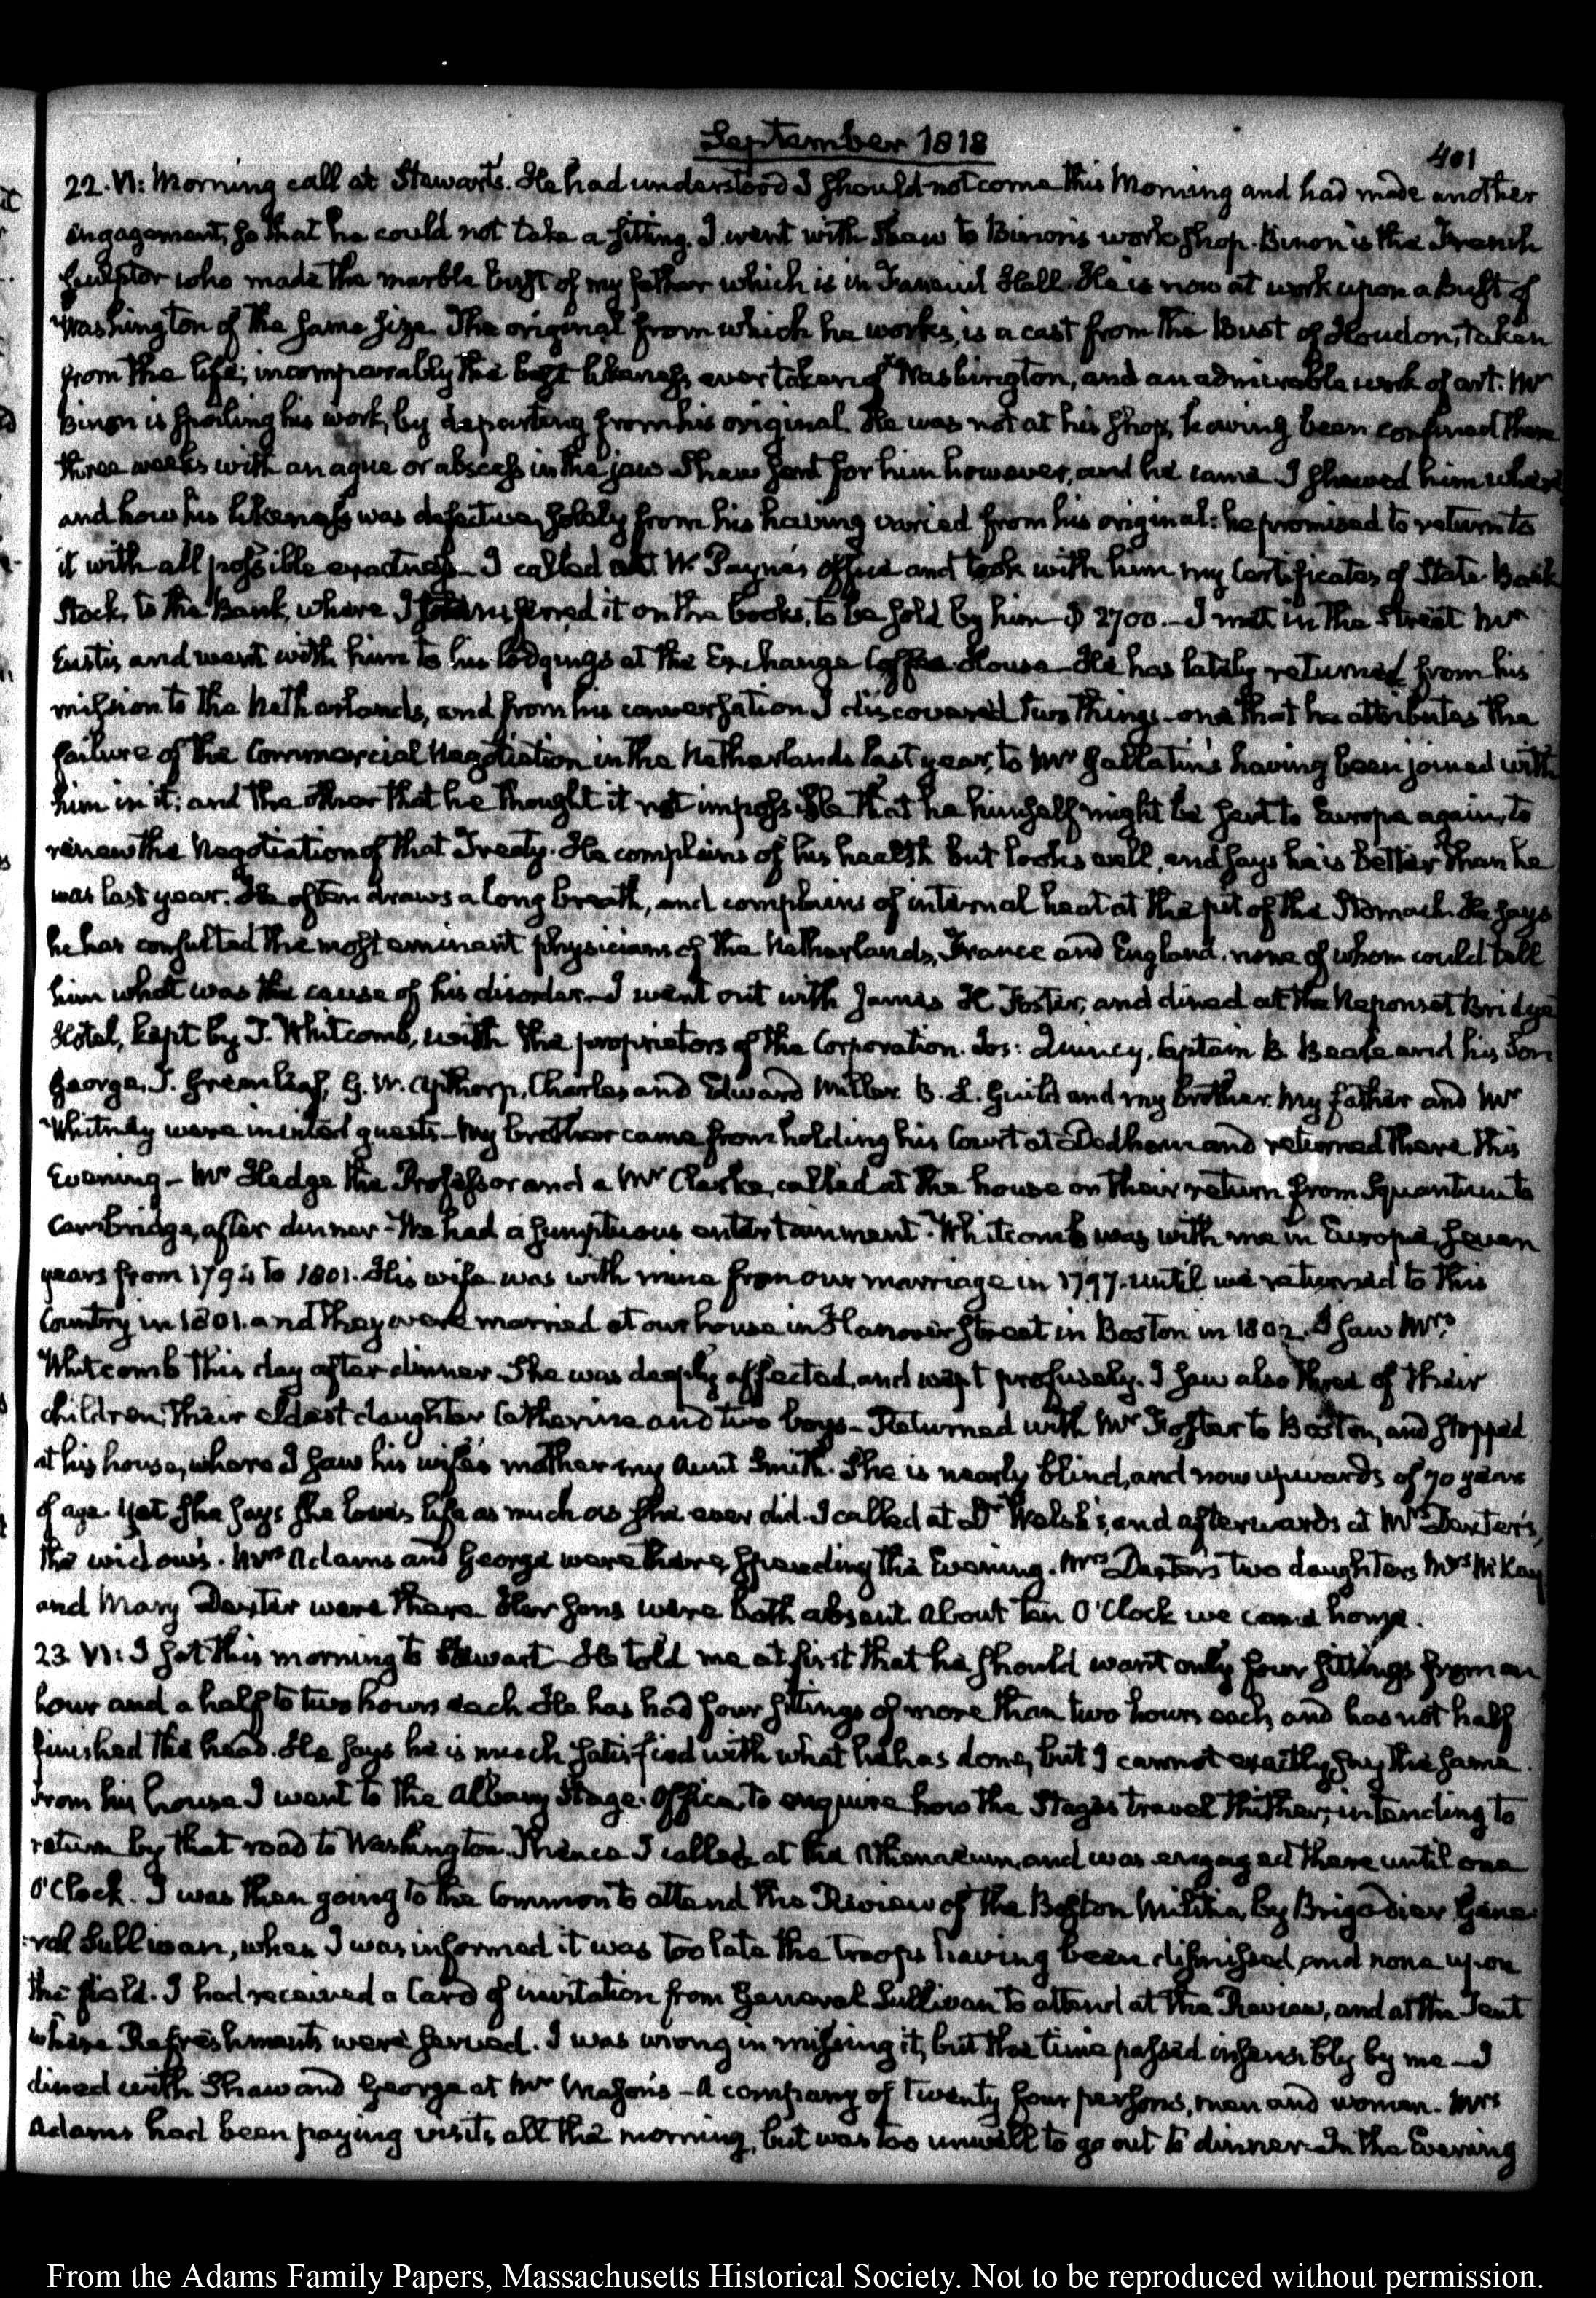 September 1818
401
22. VI: Morning call at Stewart's. He had understood I should not come this Morning and had made another
engagement, so that he could not take a sitting. I went with Shaw to Binon's work-shop. Binon is the French
Sculptor who made the marble bust of my father which is in Faneuil Hall. He is now at work upon a Bust of
Washington of the same size. The original from which he works, is a cast from the Bust of Houdon, taken
from the life; incomparably the best likeness ever taken of Washington, and an admirable work of art. Mr
Binon is spoiling his work, by departing from his original. He was not at his shop, having been confined these
three weeks with an ague or abscess in the jaw. Shaw sent for him however, and he came. I shewed him where
and how his likeness was defective, solely from his having varied from his original: he promised to return to
it with all possible exactness— I called at W. Payne's office and took with him my Certificates of State-Bank
Stock, to the Bank, where I transferred it on the books, to be sold by him— $ 2700.— I met in the Street Mr
Eustis, and went with him to his lodgings at the Exchange Coffee-House— He has lately returned from his
mission to the Netherlands, and from his conversation I discovered two things— one that he attributes the
failure of the Commercial Negotiation in the Netherlands last year, to Mr Gallatin's having been joined with
him in it; and the other that he thought it not impossible that he himself might be sent to Europe again, to
renew the Negotiation of that Treaty. He complains of his health but looks well, and says he is better than he
was last year. He often draws a long breath, and complains of internal heat at the pit of the Stomach. He says
he has consulted the most eminent physicians of the Netherlands, France and England. none of whom could tell
him what was the cause of his disorder— I went out with James H. Foster, and dined at the Neponset Bridge
Hotel, kept by T. Whitcomb, with the proprietors of the Corporation. Jos: Quincy, Captain B. Beale and his Son
George, J. Greenleaf, G. W. Apthorp, Charles and Edward Miller. B. L. Guild and my brother. My father and Mr
Whitney were invited guests— My brother came from holding his Court at Dedham and returned there this
Evening— Mr Hedge the Professor and a Mr Clarke, called at the house on their return from Squantum to
Cambridge, after dinner— We had a sumptuous entertainment. Whitcomb was with me in Europe, seven
years from 1794 to 1801. His wife was with mine from our marriage in 1797. until we returned to this
Country in 1801. and they were married at our house in Hanover Street in Boston in 1802. I saw Mrs
Whitcomb this day after dinner. She was deeply affected, and wept profusely. I saw also three of their
children, their eldest daughter Catherine and two boys— Returned with Mr Foster to Boston, and stopped
at his house, where I saw his wife's mother my Aunt Smith. She is nearly blind, and now upwards of 70 years
of age. yet she says she loves life as much as she ever did. I called at Dr Welsh's, and afterwards at Mrs Dexter's,
the widow's. Mrs Adams and George were there, spending the Evening. Mrs Dexter's two daughters Mrs McKay
and Mary Dexter were there. Her sons were both absent. About ten O'Clock we came home.
23. VI: I sat this morning to Stewart— He told me at first that he should want only four sittings from an
hour and a half to two hours each. He has had four sittings of more than two hours each, and has not half
finished the head. He says he is much satisfied with what he has done, but I cannot exactly say the same.
From his house I went to the Albany Stage-Office, to enquire how the Stages travel thither, intending to
return by that road to Washington. Thence I called at the Athenaeum, and was engaged there until one
O'Clock. I was then going to the Common to attend the Review of the Boston Militia, by Brigadier Gene-
ral Sullivan, when I was informed it was too late the troops having been dismissed, and none upon
the field. I had received a Card of invitation from General Sullivan to attend at the Review, and at the Tent
where Refreshments were served. I was wrong in missing it, but the time passed insensibly by me— I
dined with Shaw and George at Mr Mason's— A company of twenty four persons, men and women. Mrs
Adams had been paying visits all the morning, but was too unwell to go out to dinner— In the Evening
From the Adams Family Papers, Massachusetts Historical Society. Not to be reproduced without permission.